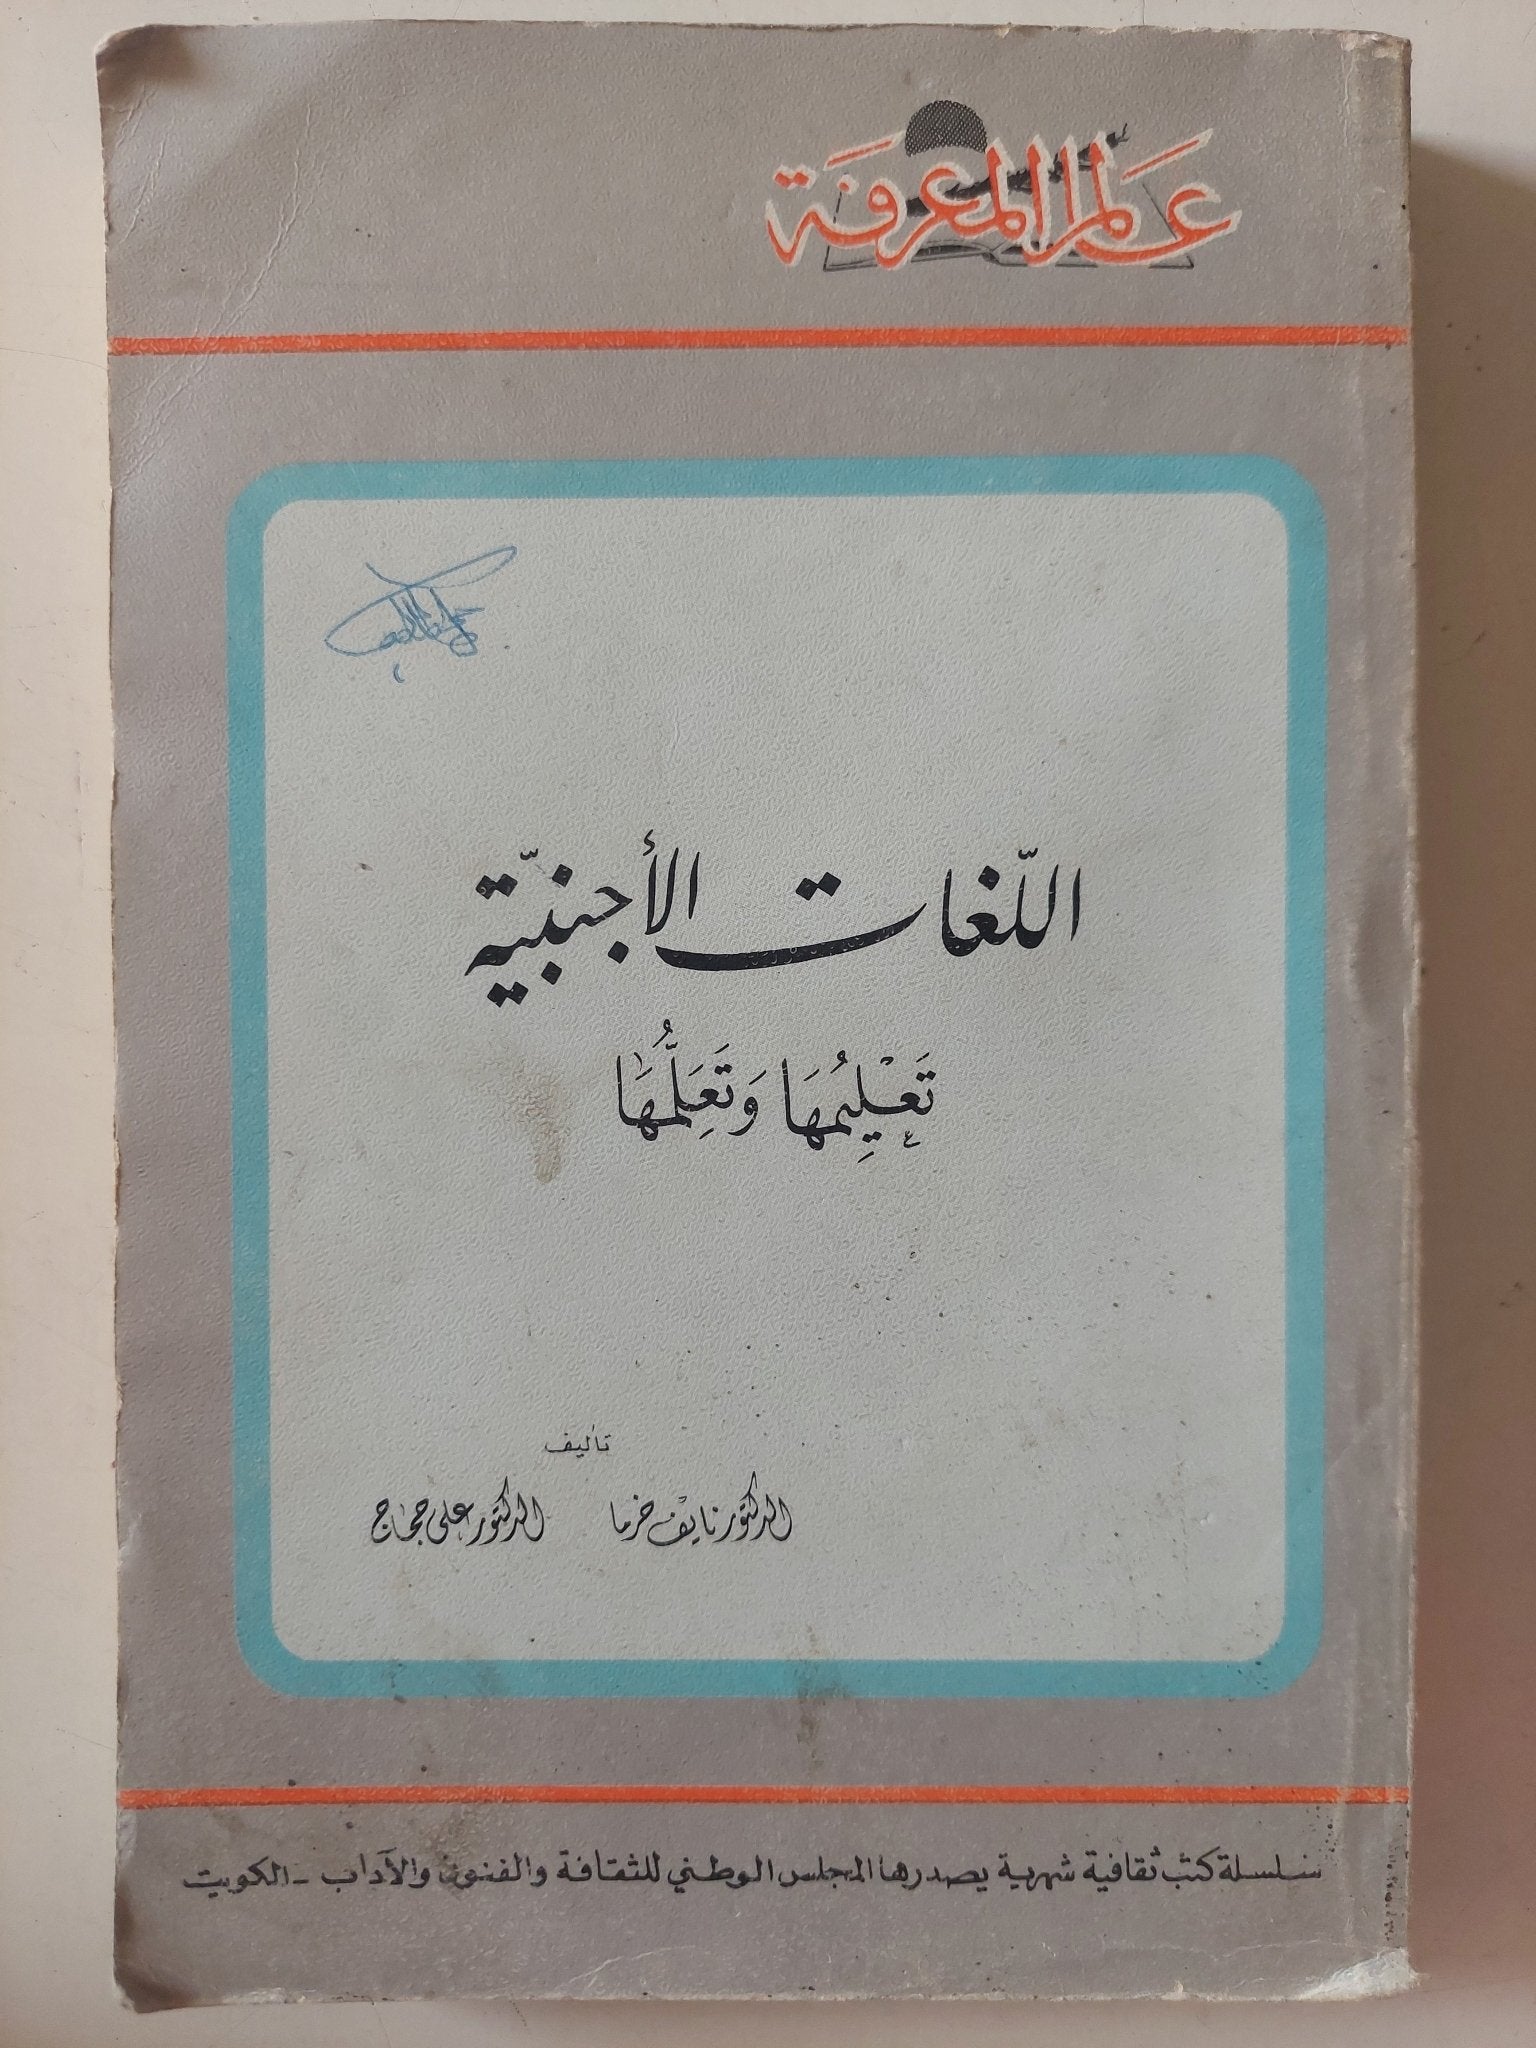 عالم المعرفة
اللّغات الأجنبيّة
تَعْلِيمُهَا وَتَعَلُّمُهَا
تأليف
الدكتور نايف خرما الدكتور علي حجاج
سلسلة كتب ثقافية شهرية يصدرها المجلس الوطني للثقافة والفنون والآداب - الكويت